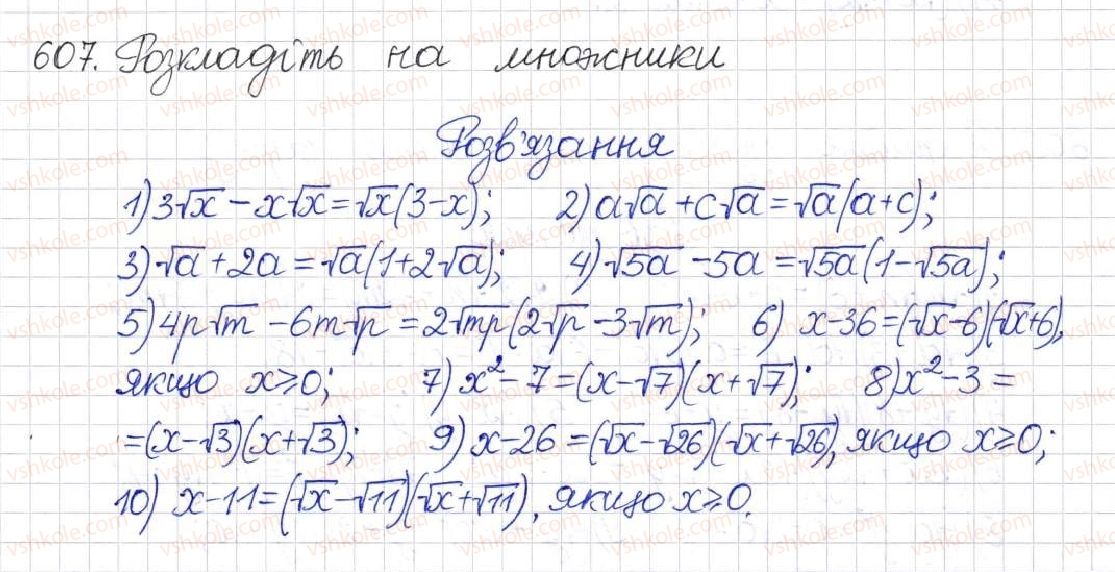 607. Розкладіть на множники
Розв'язання
1) 3√x - x√x = √x(3-x); 2) a√a + c√a = √a(a+c);
3) √a + 2a = √a(1+2√a); 4) √5a - 5a = √5a(1-√5a);
5) 4p√m - 6m√p = 2√mp(2√p - 3√m); 6) x-36 = (√x-6)(√x+6),
якщо x≥0; 7) x²-7 = (x-√7)(x+√7); 8) x²-3 =
=(x-√3)(x+√3); 9) x-26 = (√x-√26)(√x+√26), якщо x≥0;
10) x-11 = (√x-√11)(√x+√11), якщо x≥0.